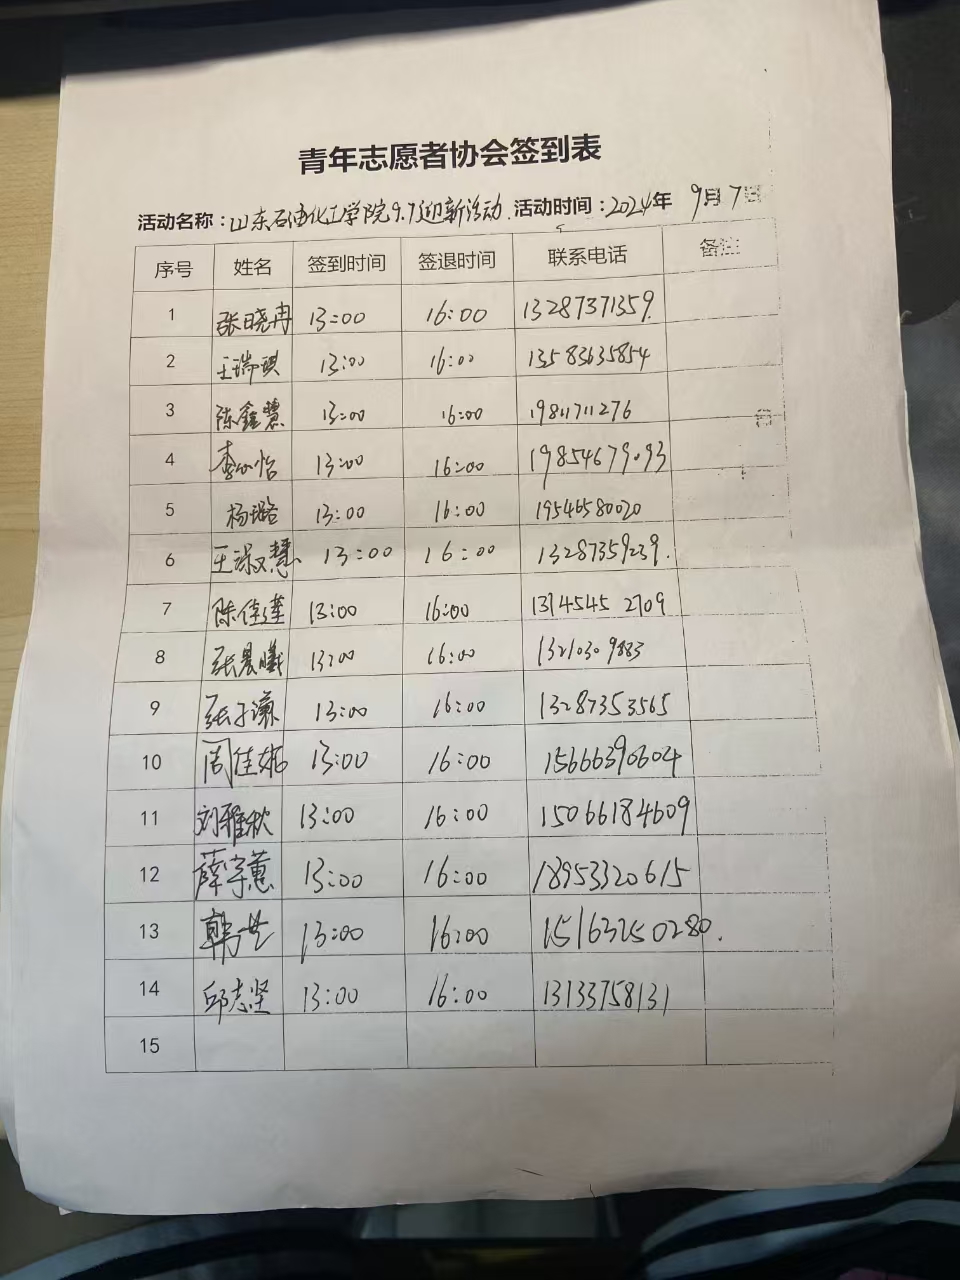 青年志愿者协会签到表
活动名称：山东石油化工学院9.7迎新活动. 活动时间：2024年 9月7日
序号 姓名 签到时间 签退时间 联系电话 备注
1 张晓冉 13:00 16:00 13287371359.
2 王瑞琪 13:00 16:00 13583635854
3 陈鑫慧 13:00 16:00 1981711276
4 13:00 16:00 19854679093
5 杨璐 13:00 16:00 19546580020
6 王淑慧 13:00 16:00 13287359239.
7 陈佳莲 13:00 16:00 13145452709
8 张晨曦 13:00 16:00 13210309883
9 张子谦 13:00 16:00 13287353565
10 周佳娜 13:00 16:00 15666390604
11 刘雅秋 13:00 16:00 15066184609
12 薛宇蕙 13:00 16:00 18953320615
13 韩世 13:00 16:00 15163250280.
14 邱志坚 13:00 16:00 13133758131
15